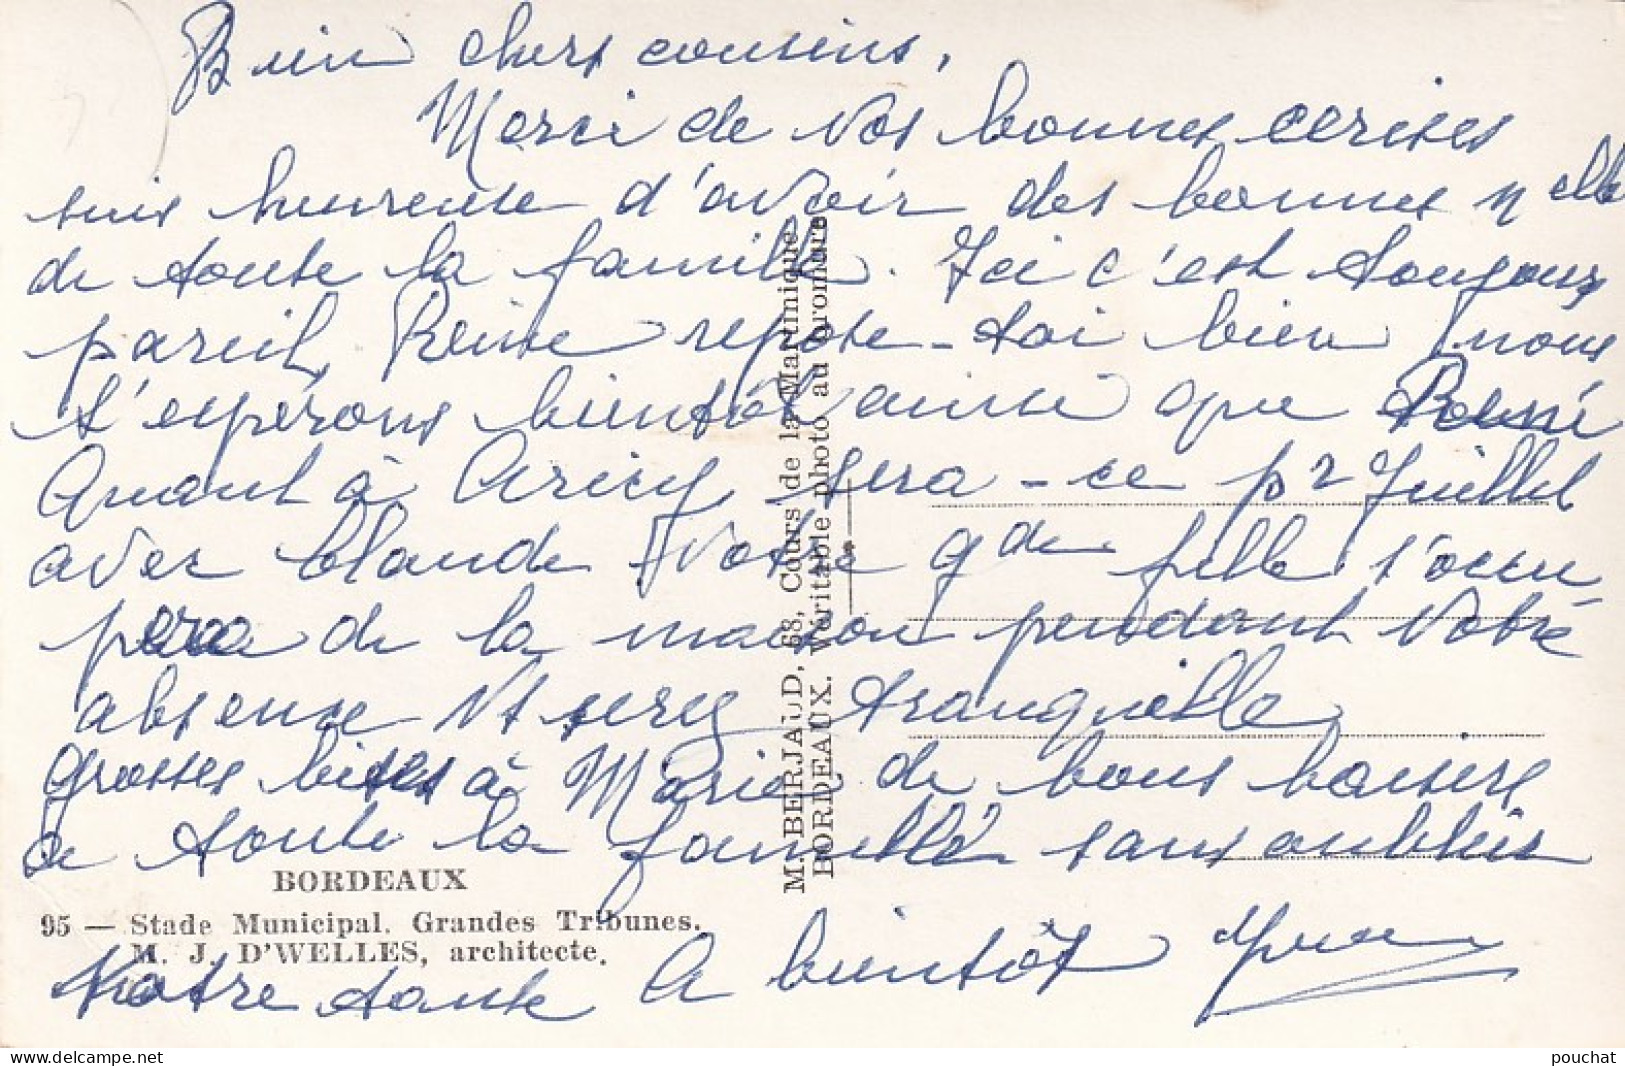 Bien chers cousins,
Merci de vos bonnes cerises
suis heureuse d'avoir des bonnes nelles
de toute la famille. Ici c'est toujours
pareil, Reine repose-toi bien nous
t'espérons bientôt ainsi que René
Quant à Cricq sera-ce pr Juillet
avec Claude Votre gde fille s'occu
pera de la maison pendant votre
absence Vs serez tranquille
Grosses bises à Marie de bons baisers
à toute la famille sans oublier
Notre tante A bientôt
BORDEAUX
95 — Stade Municipal. Grandes Tribunes.
M. J. D'WELLES, architecte.
M. BERJAUD, 68, Cours de la Martinique
BORDEAUX. Véritable photo au bromure
delcampe.net
pouchat